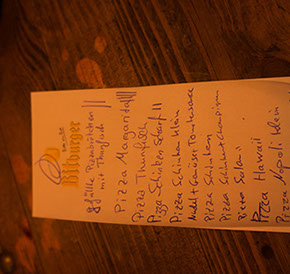 Bitburger
gefüllte Pizzabrötchen ||
mit Thunfisch
Pizza Margarita
Pizza Thunfisch
Pizza Schinken Scharf ||
Pizza Schinken klein
Nudel + Gemüse Tomatensauce
Pizza Schinken
Pizza Schinken Champion
Pizza Salami
Pizza Hawaii
Pizza Napoli klein